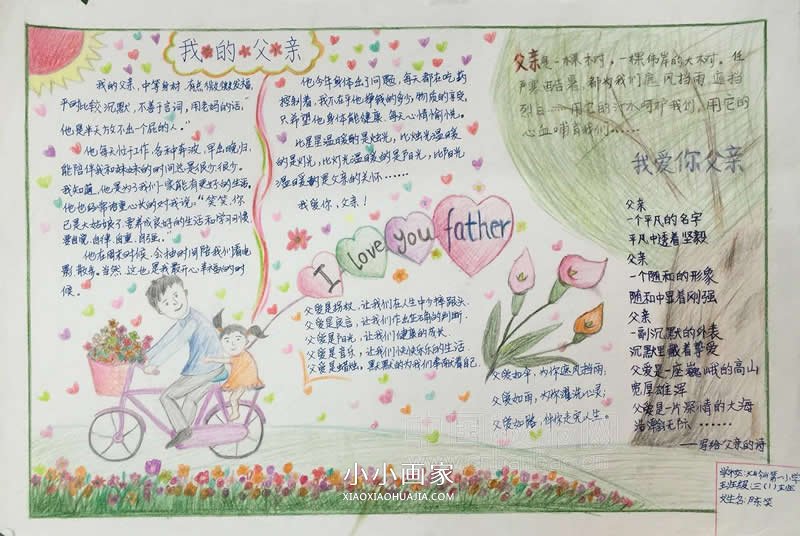 我的父亲
我的父亲，中等身材，有点微微发福，
平时比较沉默，不善言词，用老妈的话：
他是半天放不出一个屁的人。”
他每天忙于工作，各种奔波，早出晚归，
能陪伴我和妹妹的的时间还是很少很少。
我知道，他是为了我们一家能有更好的生活。
他也经常语重心长的对我说：“笑笑，你
已是大姑娘了，要养成良好的生活和学习习惯
要自觉，自律，自重，自强。”
他在周末时候，会抽时间陪我们看电
影，散步。当然，这也是我最开心幸福的的时
候。
他今年身体出了问题，每天都在吃药
控制着，我不在乎他挣钱的多少，物质的享受，
只希望他身体能健康，每天心情愉悦。
比星星温暖的是烛光，比烛光温暖
的是灯光，比灯光温暖的是阳光，比阳光
温暖的是父亲的关怀……
我爱你，父亲！
I love you father
父爱是拐杖，让我们在人生中少摔跟头．
父爱是良言，让我们作出正确的判断．
父爱是阳光，让我们健康的成长．
父爱是音乐，让我们快快乐乐的生活．
父爱是蜡烛，默默的为我们奉献着自己．
父爱如伞，为你遮风挡雨；
父爱如雨，为你濯洗心灵；
父爱如路，伴你走完人生。
父亲是一棵木对，一棵伟岸的大木对。任
严寒酷暑，都为我们庇风挡雨，遮挡
烈日……用它的汁水呵护我们，用它的
心血哺育我们……
我爱你父亲
父亲
一个平凡的名字
平凡中透着坚毅
父亲
一个随和的形象
随和中显着刚强
父亲
一副沉默的外表
沉默里藏着挚爱
父爱是一座巍峨的高山
宽厚雄浑
父爱是一片深情的大海
浩瀚无际……
——写给父亲的诗
第一小学
班级：三(1)班
姓名：陈笑
小小画家
XIAOXIAOHUAJIA.COM